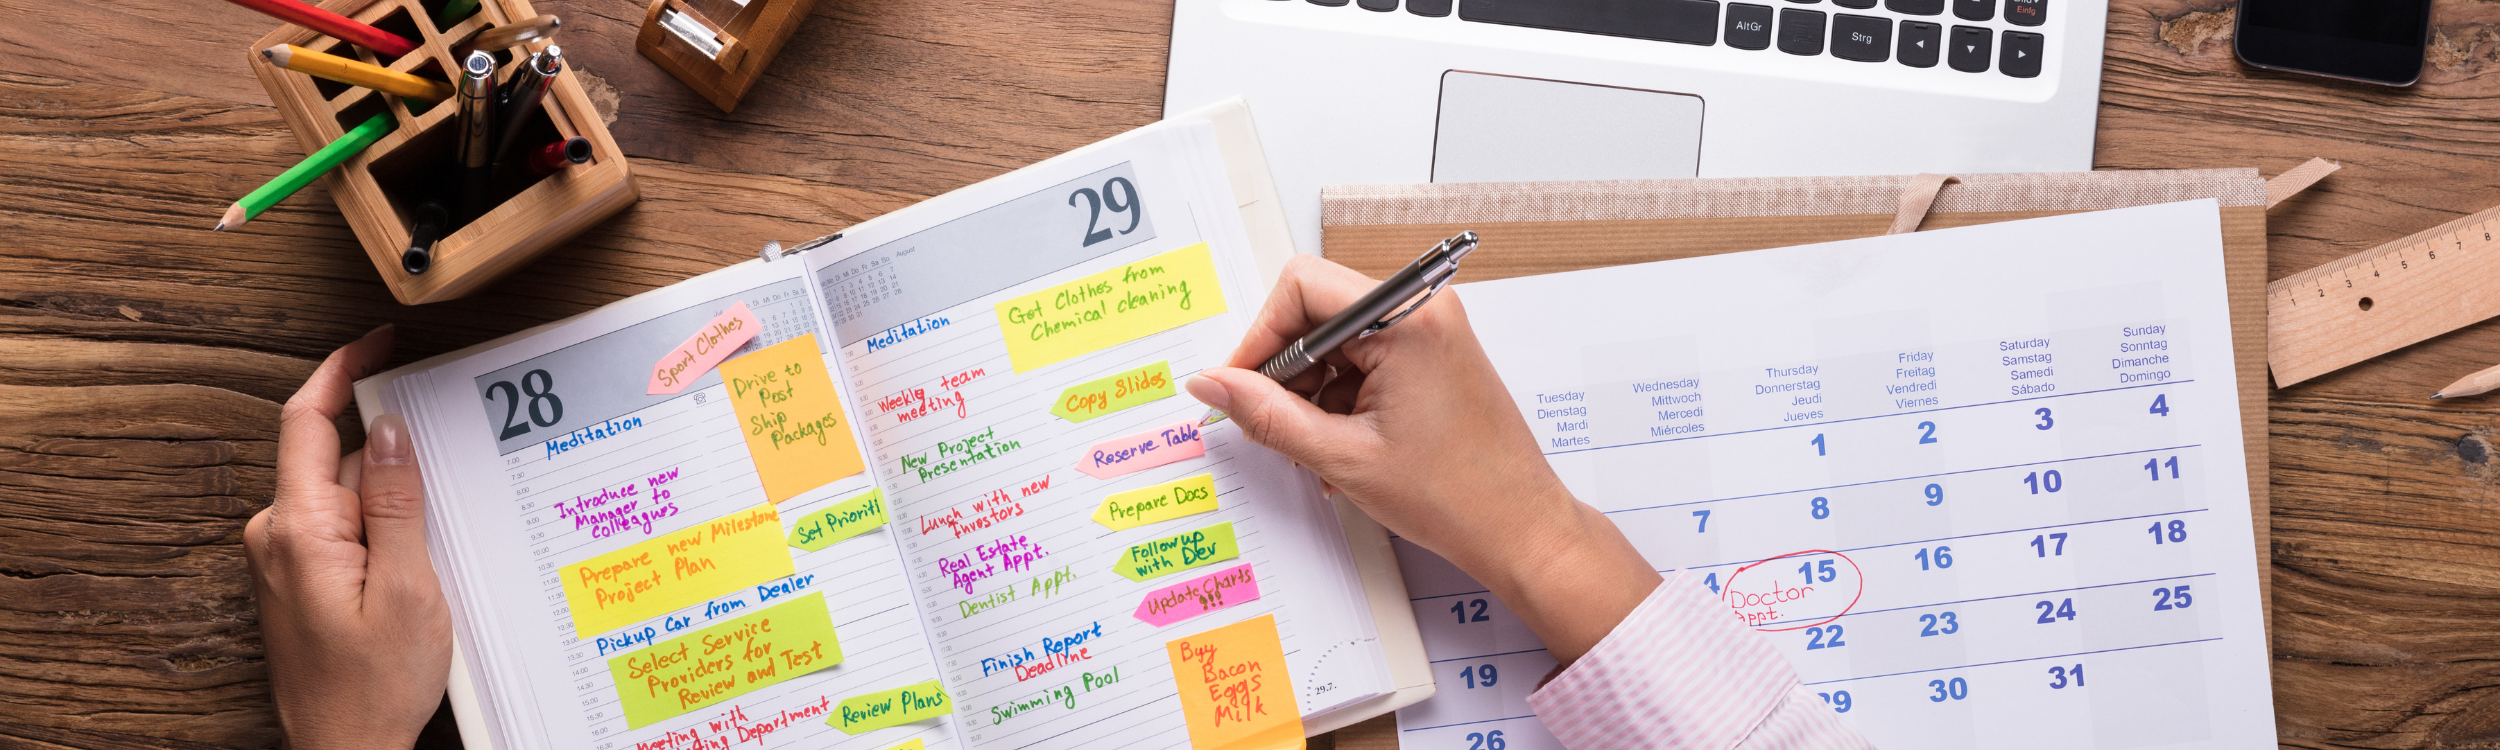 AltGr
Strg
Einfg
28
Meditation
Sport Clothes
Drive to
Post
Ship
Packages
Introduce new
Manager to
Colleagues
Set Prioriti
Prepare new Milestone
Project Plan
Pickup Car from Dealer
Select Service
Providers for
Review and Test
Meeting with
Department
Review Plans
29
August
Meditation
Get Clothes from
Chemical cleaning
Weekly team
meeting
Copy Slides
New Project
Presentation
Reserve Table
Lunch with new
Investors
Prepare Docs
Real Estate
Agent Appt.
Follow up
with Dev
Dentist Appt.
Update Charts
!!!
Finish Report
Deadline
Swimming Pool
Buy
Bacon
Eggs
Milk
29.7.
Tuesday Wednesday Thursday Friday Saturday Sunday
Dienstag Mittwoch Donnerstag Freitag Samstag Sonntag
Mardi Mercedi Jeudi Vendredi Samedi Dimanche
Martes Miércoles Jueves Viernes Sábado Domingo
1 2 3 4
7 8 9 10 11
12 4 15 16 17 18
Doctor
Appt.
19 22 23 24 25
26 29 30 31
1 2 3 4 5 6 7 8